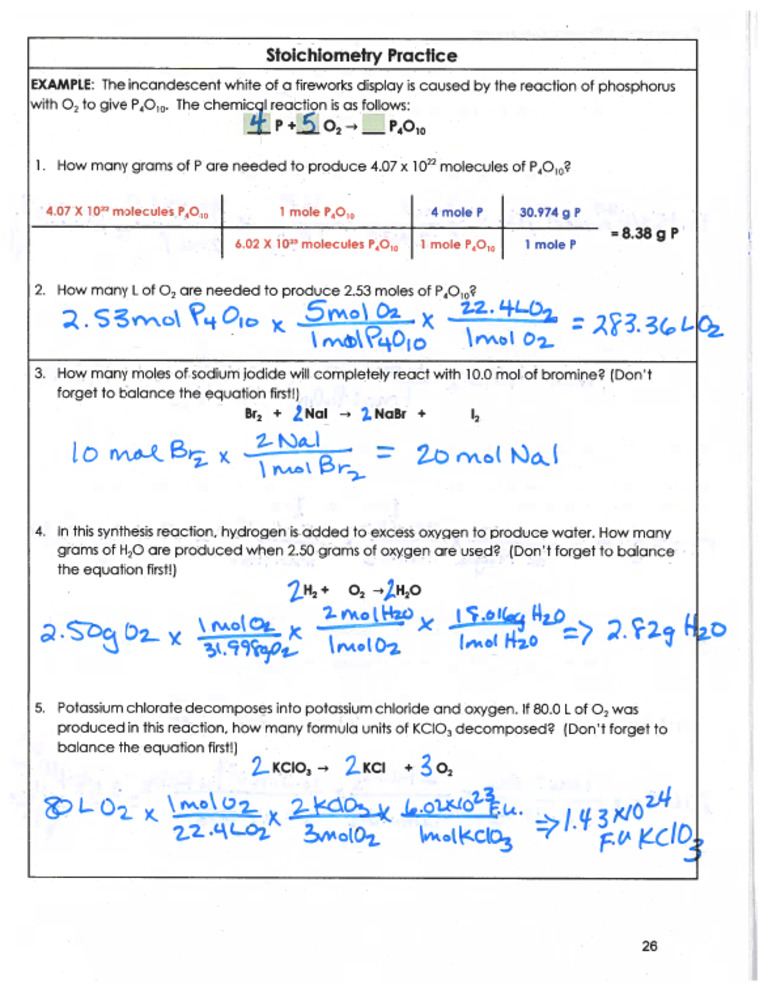 Stoichiometry Practice
EXAMPLE: The incandescent white of a fireworks display is caused by the reaction of phosphorus
with O₂ to give P₄O₁₀. The chemical reaction is as follows:
4 P + 5 O₂ → __ P₄O₁₀
1. How many grams of P are needed to produce 4.07 x 10²² molecules of P₄O₁₀?
4.07 X 10²² molecules P₄O₁₀ | 1 mole P₄O₁₀ | 4 mole P | 30.974 g P
= 8.38 g P
6.02 X 10²³ molecules P₄O₁₀ | 1 mole P₄O₁₀ | 1 mole P
2. How many L of O₂ are needed to produce 2.53 moles of P₄O₁₀?
2.53mol P₄O₁₀ x 5mol O₂ x 22.4L O₂ = 283.36 L O₂
1mol P₄O₁₀ 1mol O₂
3. How many moles of sodium iodide will completely react with 10.0 mol of bromine? (Don't
forget to balance the equation first!)
Br₂ + 2 NaI → 2 NaBr + I₂
10 mol Br₂ x 2 NaI = 20 mol NaI
1 mol Br₂
4. In this synthesis reaction, hydrogen is added to excess oxygen to produce water. How many
grams of H₂O are produced when 2.50 grams of oxygen are used? (Don't forget to balance
the equation first!)
2 H₂ + O₂ → 2 H₂O
2.50g O₂ x 1 mol O₂ x 2 mol H₂O x 18.016g H₂O => 2.82g H₂O
31.998g O₂ 1mol O₂ 1mol H₂O
5. Potassium chlorate decomposes into potassium chloride and oxygen. If 80.0 L of O₂ was
produced in this reaction, how many formula units of KClO₃ decomposed? (Don't forget to
balance the equation first!)
2 KClO₃ → 2 KCl + 3 O₂
80 L O₂ x 1mol O₂ x 2 KClO₃ x 6.02x10²³ F.u. => 1.43 x10²⁴
22.4L O₂ 3mol O₂ 1mol KClO₃ F.U KClO₃
26